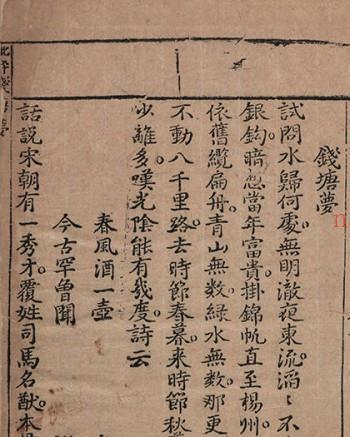 錢塘夢
試問水歸何處。無明澈夜東流。滔〻不
銀鈎。暗想當年富貴。掛錦帆直至楊州
依舊纜扁舟。青山無數。綠水無數。那更
不動八千里路。去時節春暮。來時節秋
少離多。嘆光陰能有幾度。詩云
春風酒一壺
今古罕曾聞
話説宋朝有一秀才。覆姓司馬名猷。本